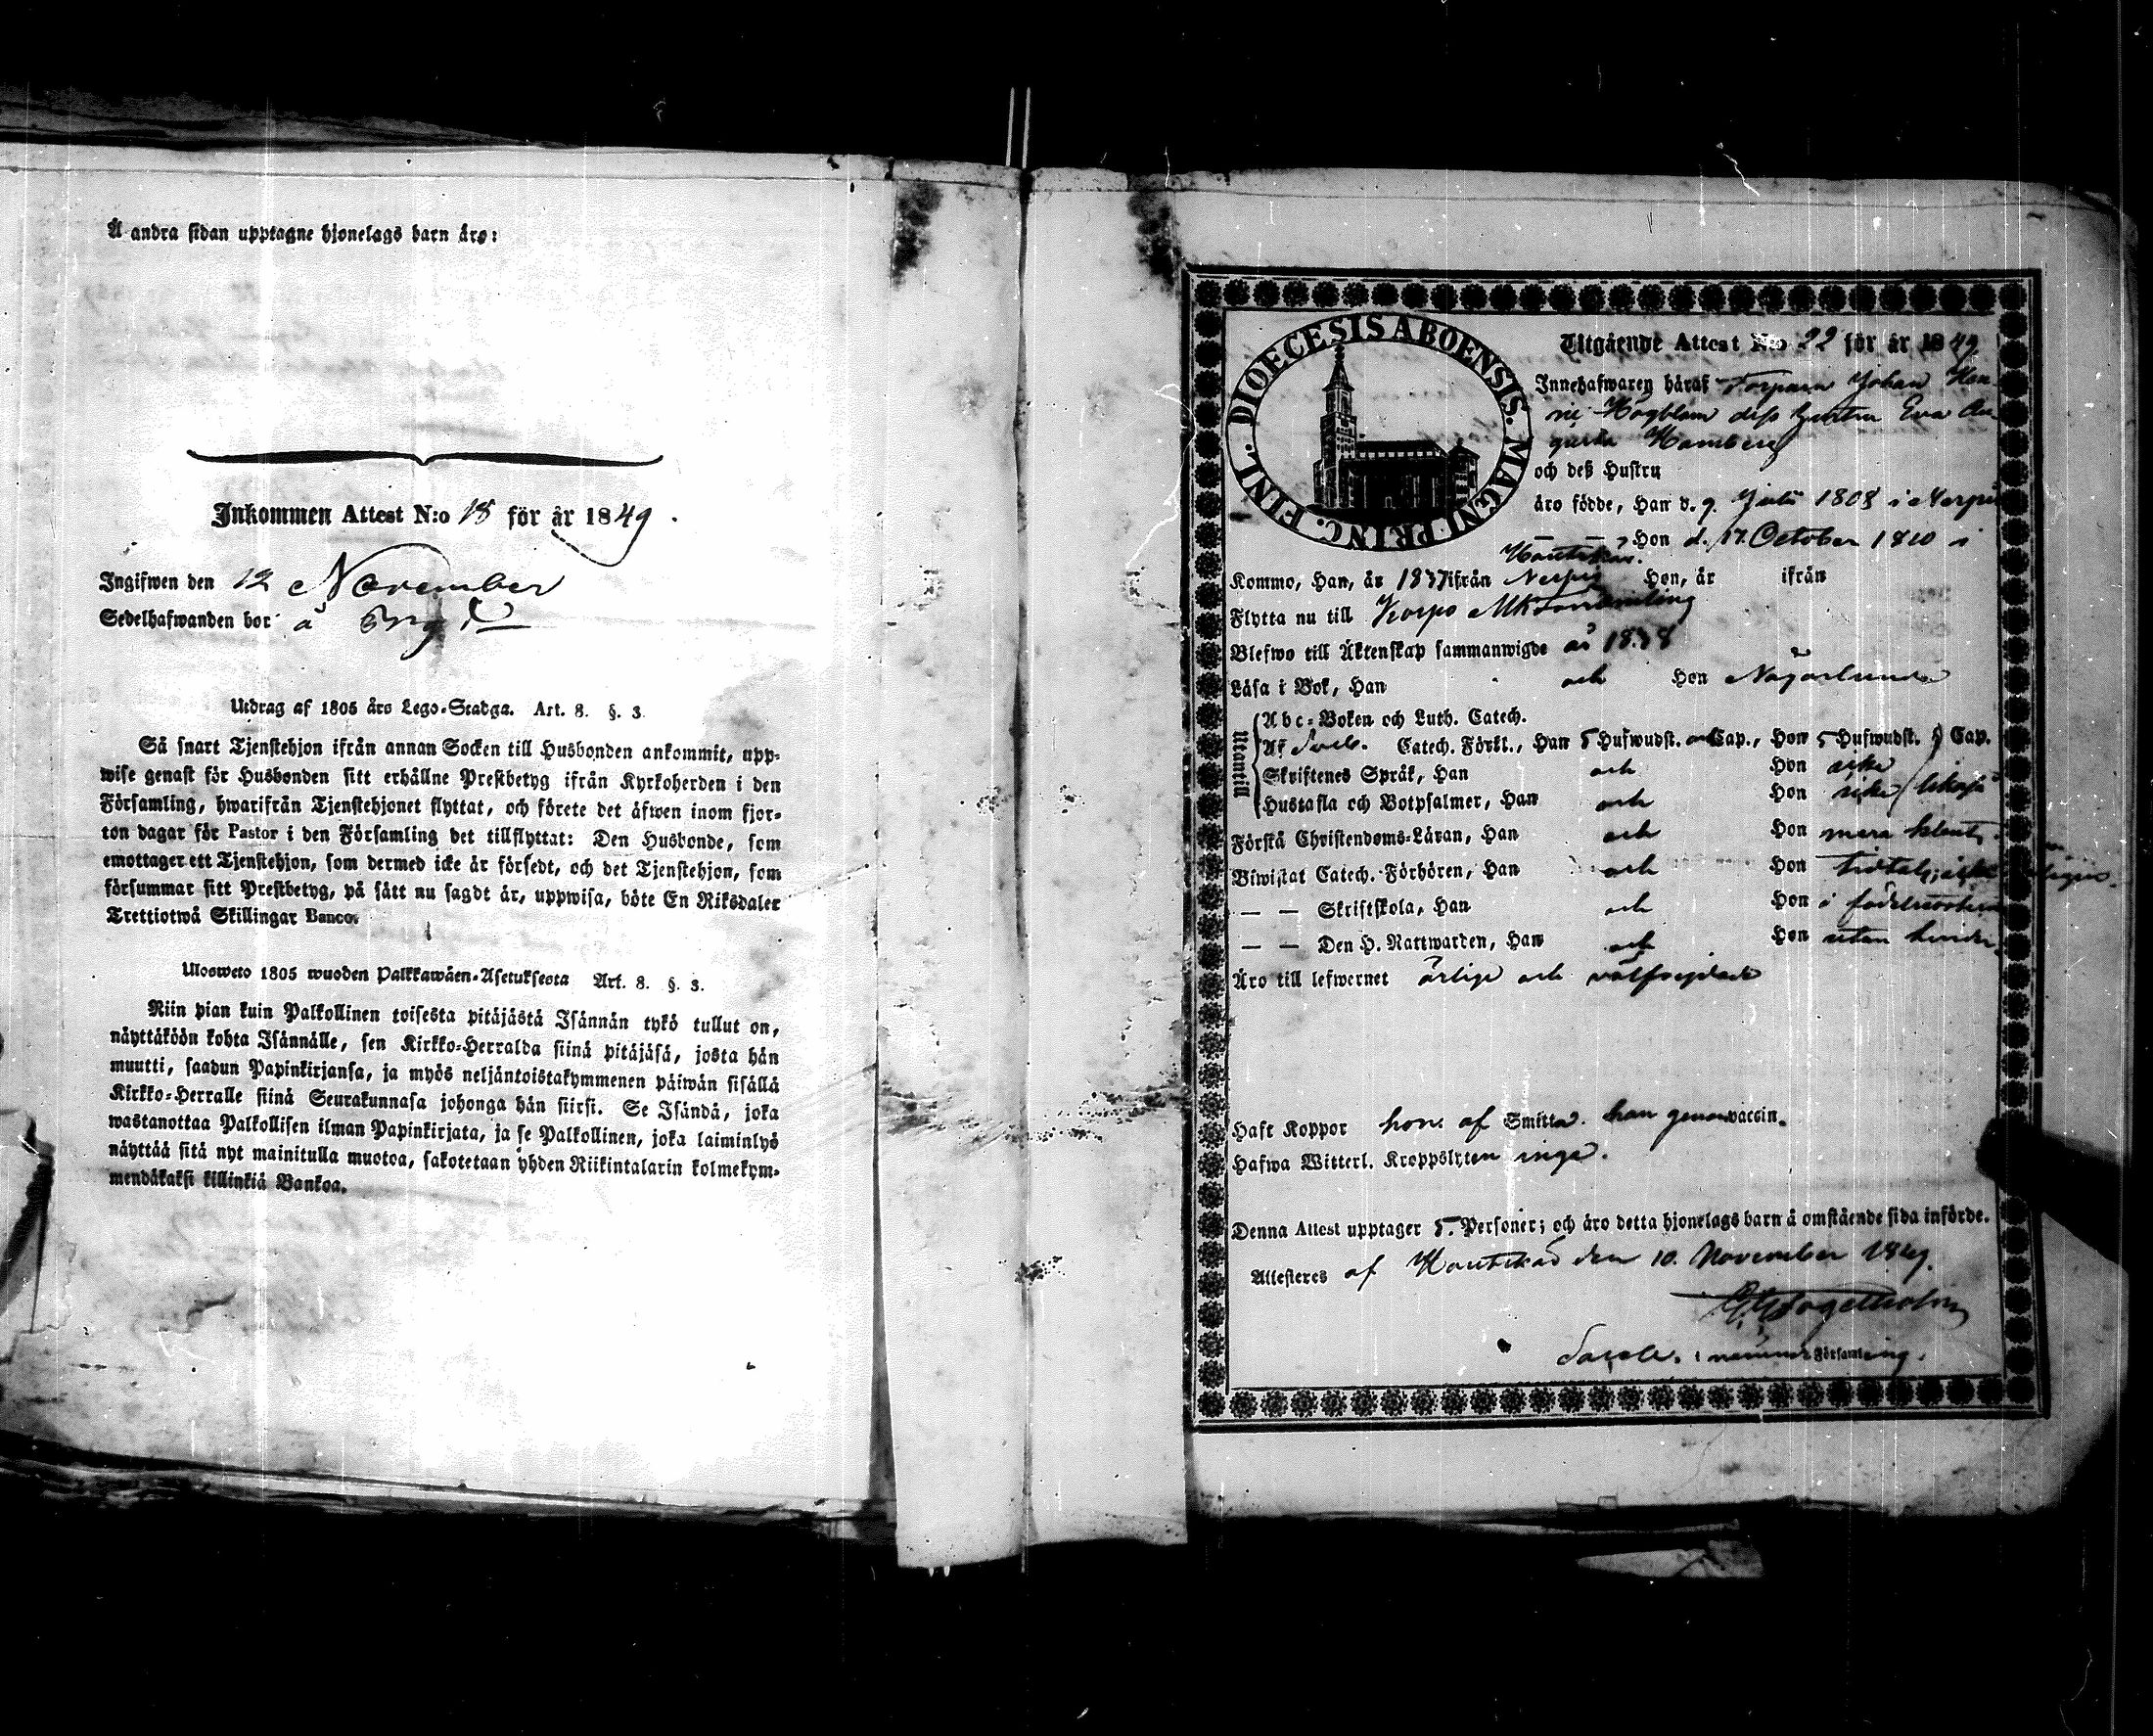 Å andra sidan upptagne hjonelags barn äro:
Inkommen Attest N:o 18 för år 1849.
Ingifwen den 12 November
Sedelhafwanden bor å
Utdrag af 1805 års Lego-Stadga. Art. 8. §. 3.
Så snart Tjenstehjon ifrån annan Socken till Husbonden ankommit, upp-
wise genast för Husbonden sitt erhållne Prestbetyg ifrån Kyrkoherden i den
Församling, hwarifrån Tjenstehjonet flyttat, och förete det äfwen inom fjor-
ton dagar för Pastor i den Församling det tillflyttat: Den Husbonde, som
emottager ett Tjenstehjon, som dermed icke är försedt, och det Tjenstehjon, som
försummar sitt Prestbetyg, på sätt nu sagdt är, uppwisa, böte En Riksdaler
Trettiotwå Skillingar Banco.
Ulosweto 1805 wuoden Palkkawäen-Asetuksesta Art. 8. §. 3.
Niin pian kuin Palkollinen toisesta pitäjästä Isännän tykö tullut on,
näyttäköön kohta Isännälle, sen Kirkko-Herralda siinä pitäjäsä, josta hän
muutti, saadun Papinkirjansa, ja myös neljäntoistakymmenen päiwän sisällä
Kirkko-Herralle siinä Seurakunnasa johonga hän siirsi. Se Isändä, joka
wastanottaa Palkollisen ilman Papinkirjata, ja se Palkollinen, joka laiminlyö
näyttää sitä nyt mainitulla muotoa, sakotetaan yhden Riikintalarin kolmekym-
mendäkaksi killinkiä Bankoa.
FINL. DIOECESIS ABOENSIS. MAGNI PRINC.
Utgående Attest N:o 22 för år 1849.
Innehafwaren häraf Torparn Johan Hen-
ric Högblom dess hustru Eva Au-
gusta Homberg
och deß Hustru
äro födde, Han d. 9 Julii 1808 i Nerpis
— — Hon d. 17. October 1810 i
Houtskär.
Kommo, Han, år 1837 ifrån Nerpis Hon, år ifrån
Flytta nu till Korpo
Blefwo till Äktenskap sammanwigde år 1838
Läsa i Bok, Han och Hon Någorlunda
Utantill
Abc-Boken och Luth. Catech.
Af Sveb. Catech. Förkl., Han 5 Hufwudst. och Cap., Hon 5 Hufwudst. Cap.
Skriftenes Språk, Han och Hon
Hustafla och Botpsalmer, Han och Hon likaså
Förstå Christendoms-Läran, Han och Hon mera klent
Biwistat Catech. Förhören, Han och Hon
— — Skriftskola, Han och Hon i
— — Den H. Nattwarden, Han och Hon utan hinder
Äro till lefwernet ärlige och välfrejdade
Haft Koppor hon af Smitta. han genom vaccin.
Hafwa Witterl. Kroppslyten inga.
Denna Attest upptager 5. Personer; och äro detta hjonelags barn å omstående sida införde.
Attesteres af Houtskär den 10. November 1849.
i nämnde Församling.